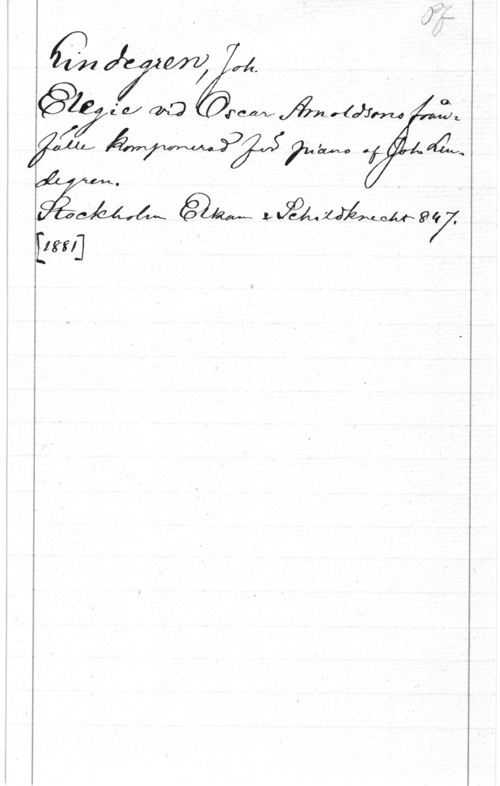 Pf
Lindegren, Joh.
Elegie vid Oscar Arnoldsons från-
fälle komponerad för piano af Joh. Lin-
degren.
Stockholm Elkan & Schildknecht 847.
[1881]